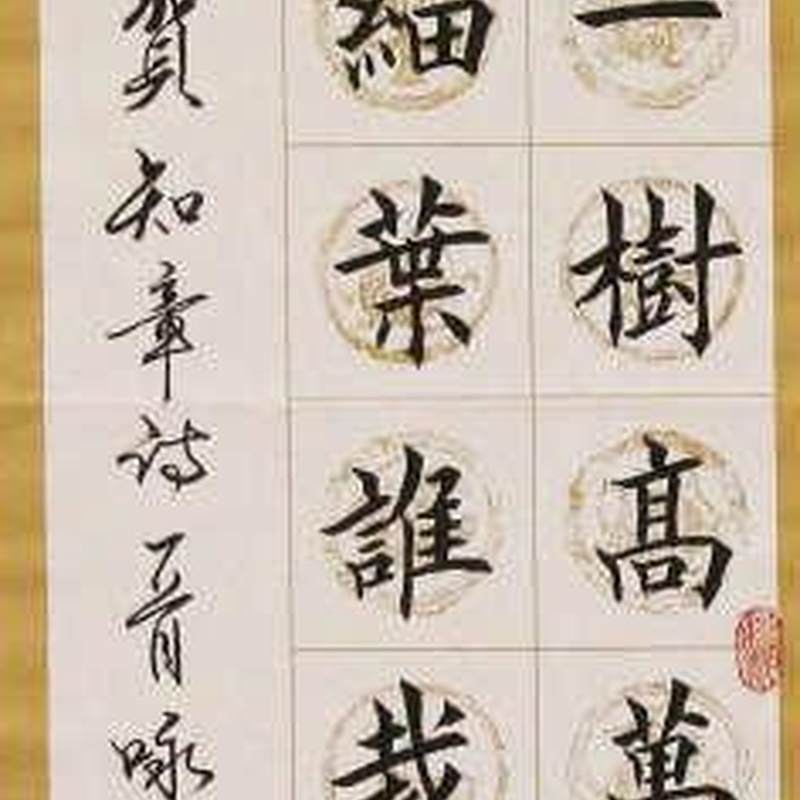 一樹高萬
細葉誰裁
賀知章詩一首咏